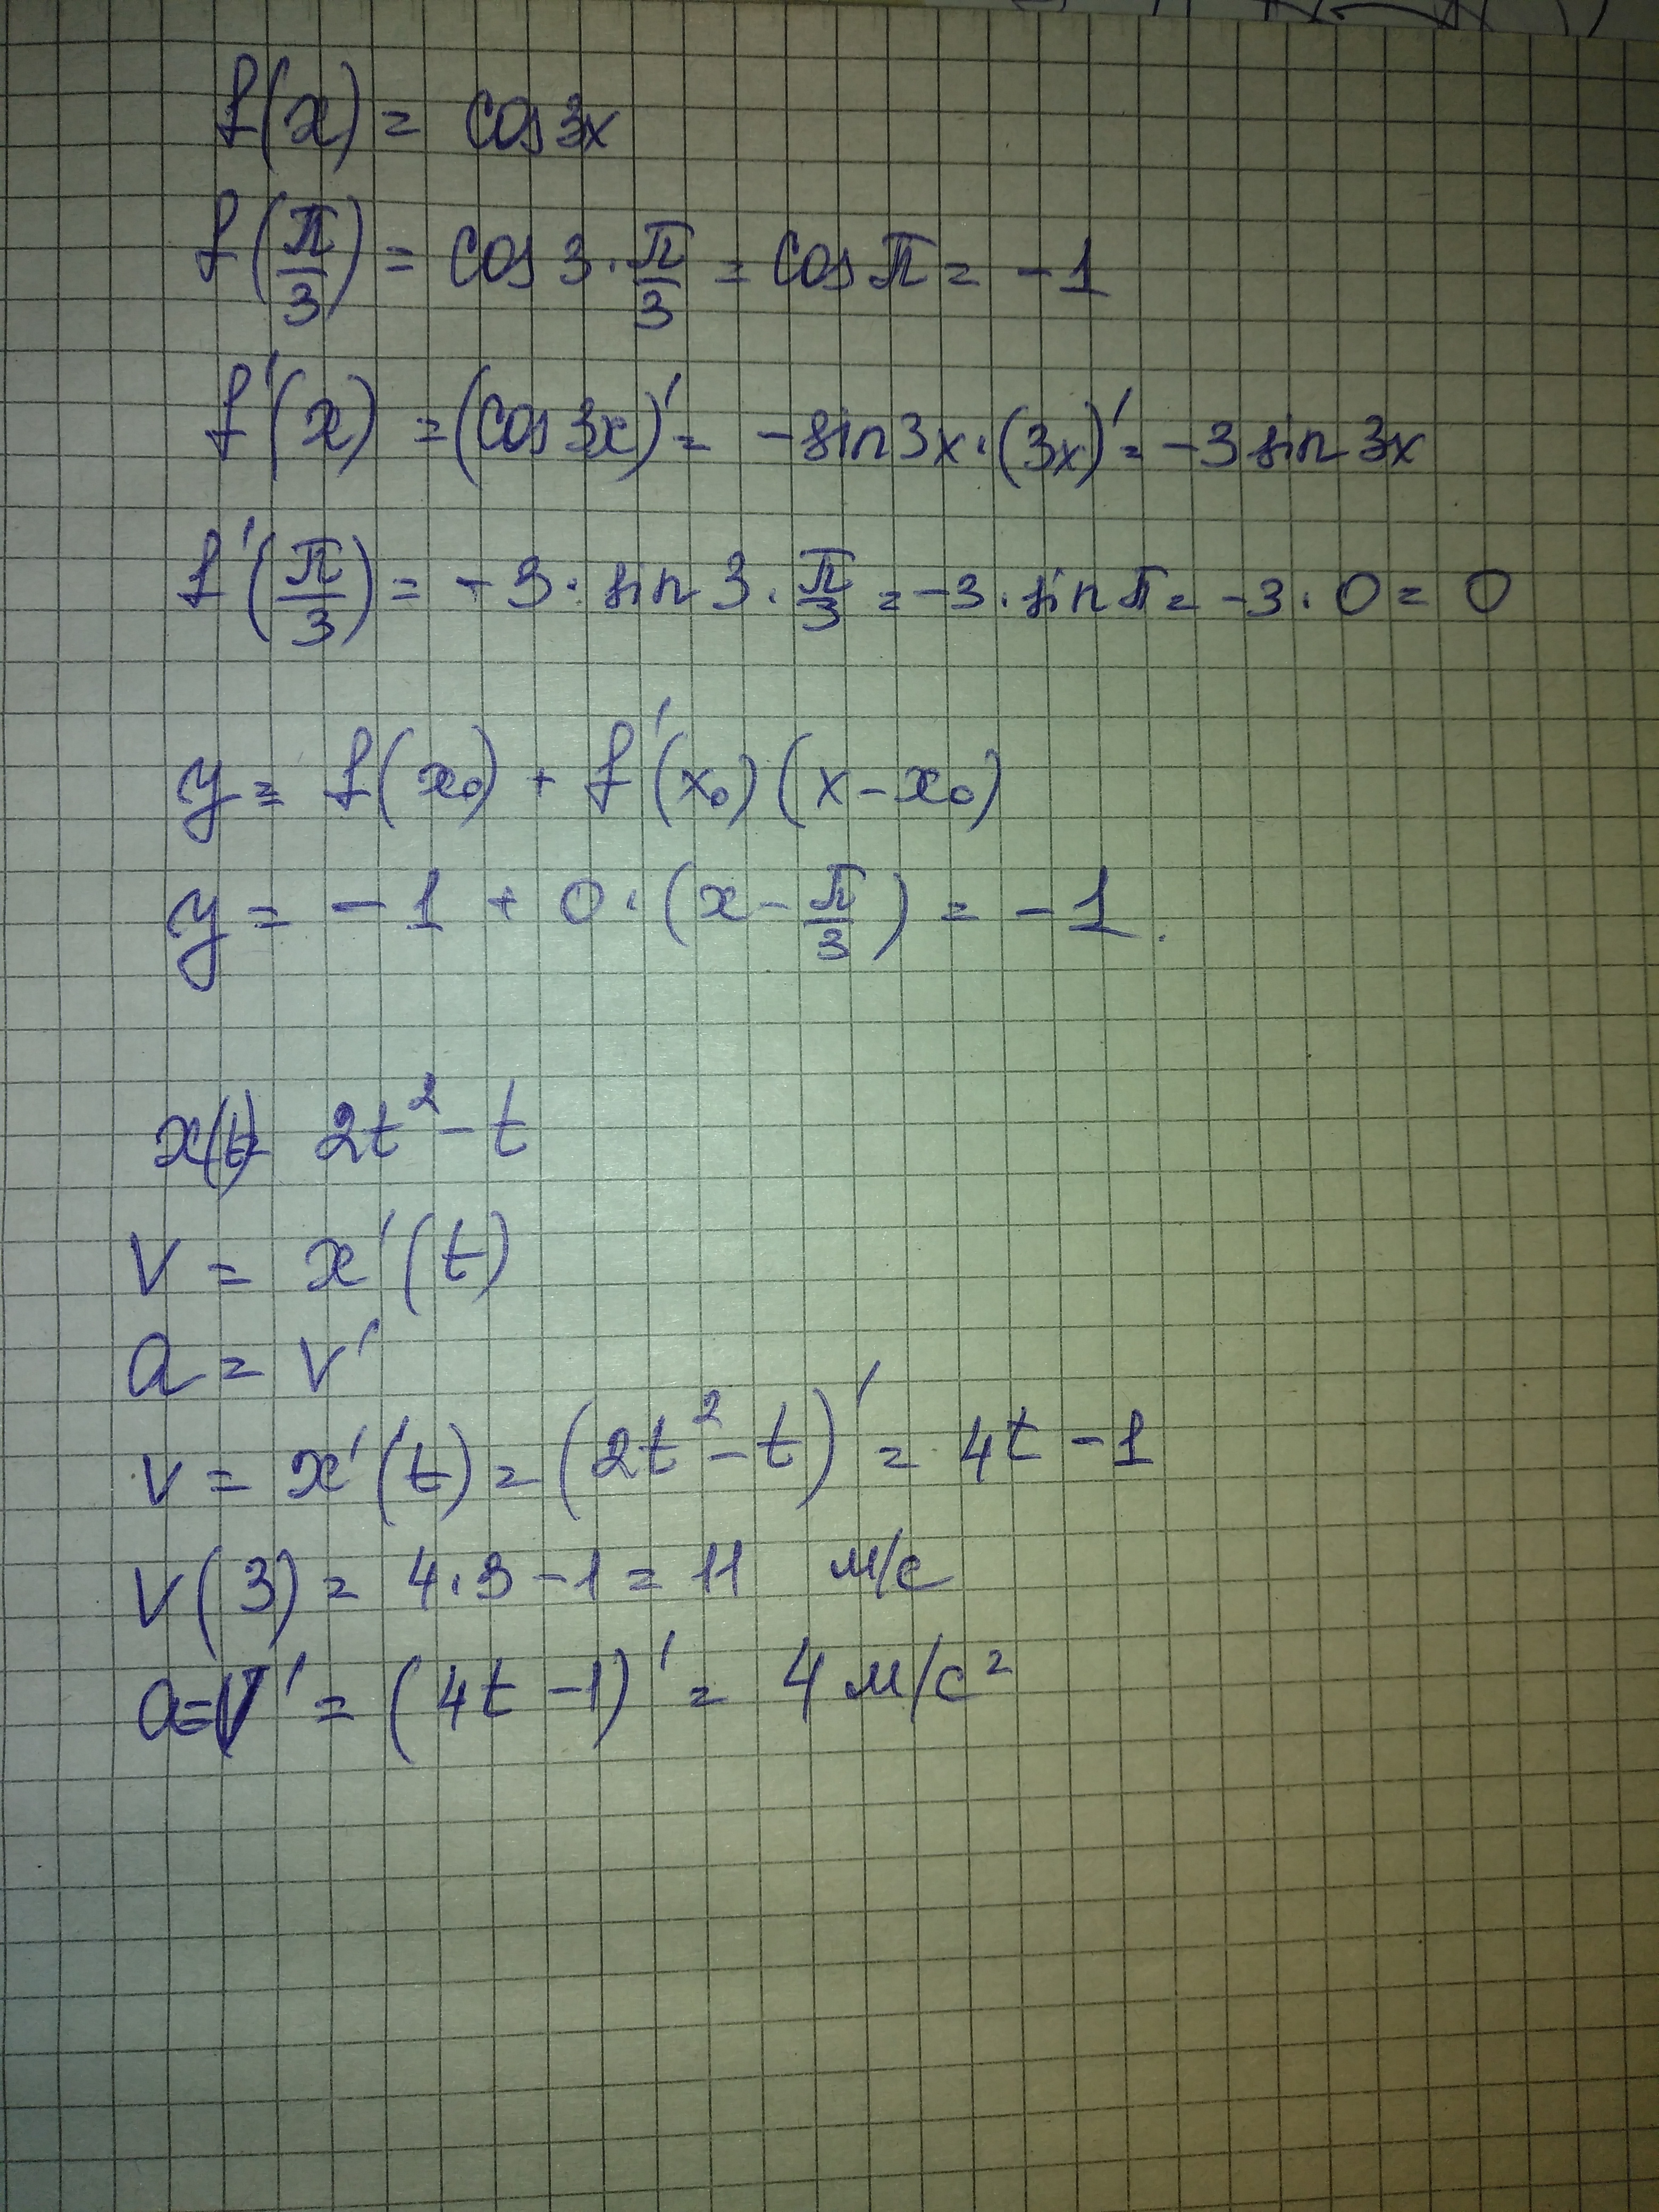 f(x) = cos 3x
f(π/3) = cos 3 · π/3 = cos π = -1
f'(x) = (cos 3x)' = -sin 3x · (3x)' = -3 sin 3x
f'(π/3) = -3 · sin 3 · π/3 = -3 · sin π = -3 · 0 = 0
y = f(x₀) + f'(x₀)(x - x₀)
y = -1 + 0 · (x - π/3) = -1.
x(t) = 2t² - t
V = x'(t)
a = V'
V = x'(t) = (2t² - t)' = 4t - 1
V(3) = 4 · 3 - 1 = 11 м/с
a = V' = (4t - 1)' = 4 м/с²